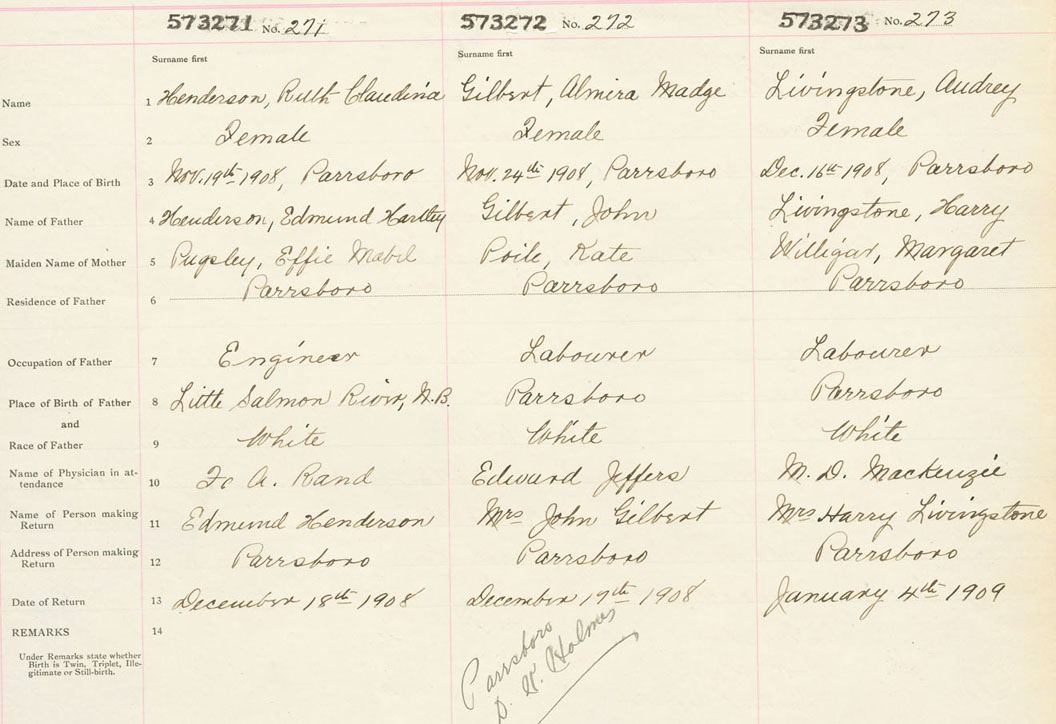 573271 No. 271 573272 No. 272 573273 No. 273
Surname first Surname first Surname first
Name 1 Henderson, Ruth Claudina Gilbert, Almira Madge Livingstone, Audrey
Sex 2 Female Female Female
Date and Place of Birth 3 Nov. 19th 1908, Parrsboro Nov. 24th 1908, Parrsboro Dec. 16th 1908, Parrsboro
Name of Father 4 Henderson, Edmund Hartley Gilbert, John Livingstone, Harry
Maiden Name of Mother 5 Pugsley, Effie Mabel Poile, Kate Willigar, Margaret
Residence of Father 6 Parrsboro Parrsboro Parrsboro
Occupation of Father 7 Engineer Labourer Labourer
Place of Birth of Father 8 Little Salmon River, N.B. Parrsboro Parrsboro
and
Race of Father 9 White White White
Name of Physician in at-
tendance 10 A. Rand Edward Jeffers M. D. MacKenzie
Name of Person making
Return 11 Edmund Henderson Mrs John Gilbert Mrs Harry Livingstone
Address of Person making
Return 12 Parrsboro Parrsboro Parrsboro
Date of Return 13 December 18th 1908 December 19th 1908 January 4th 1909
REMARKS 14
Under Remarks state whether
Birth is Twin, Triplet, Ille-
gitimate or Still-birth.
Parrsboro
D. K. Holmes